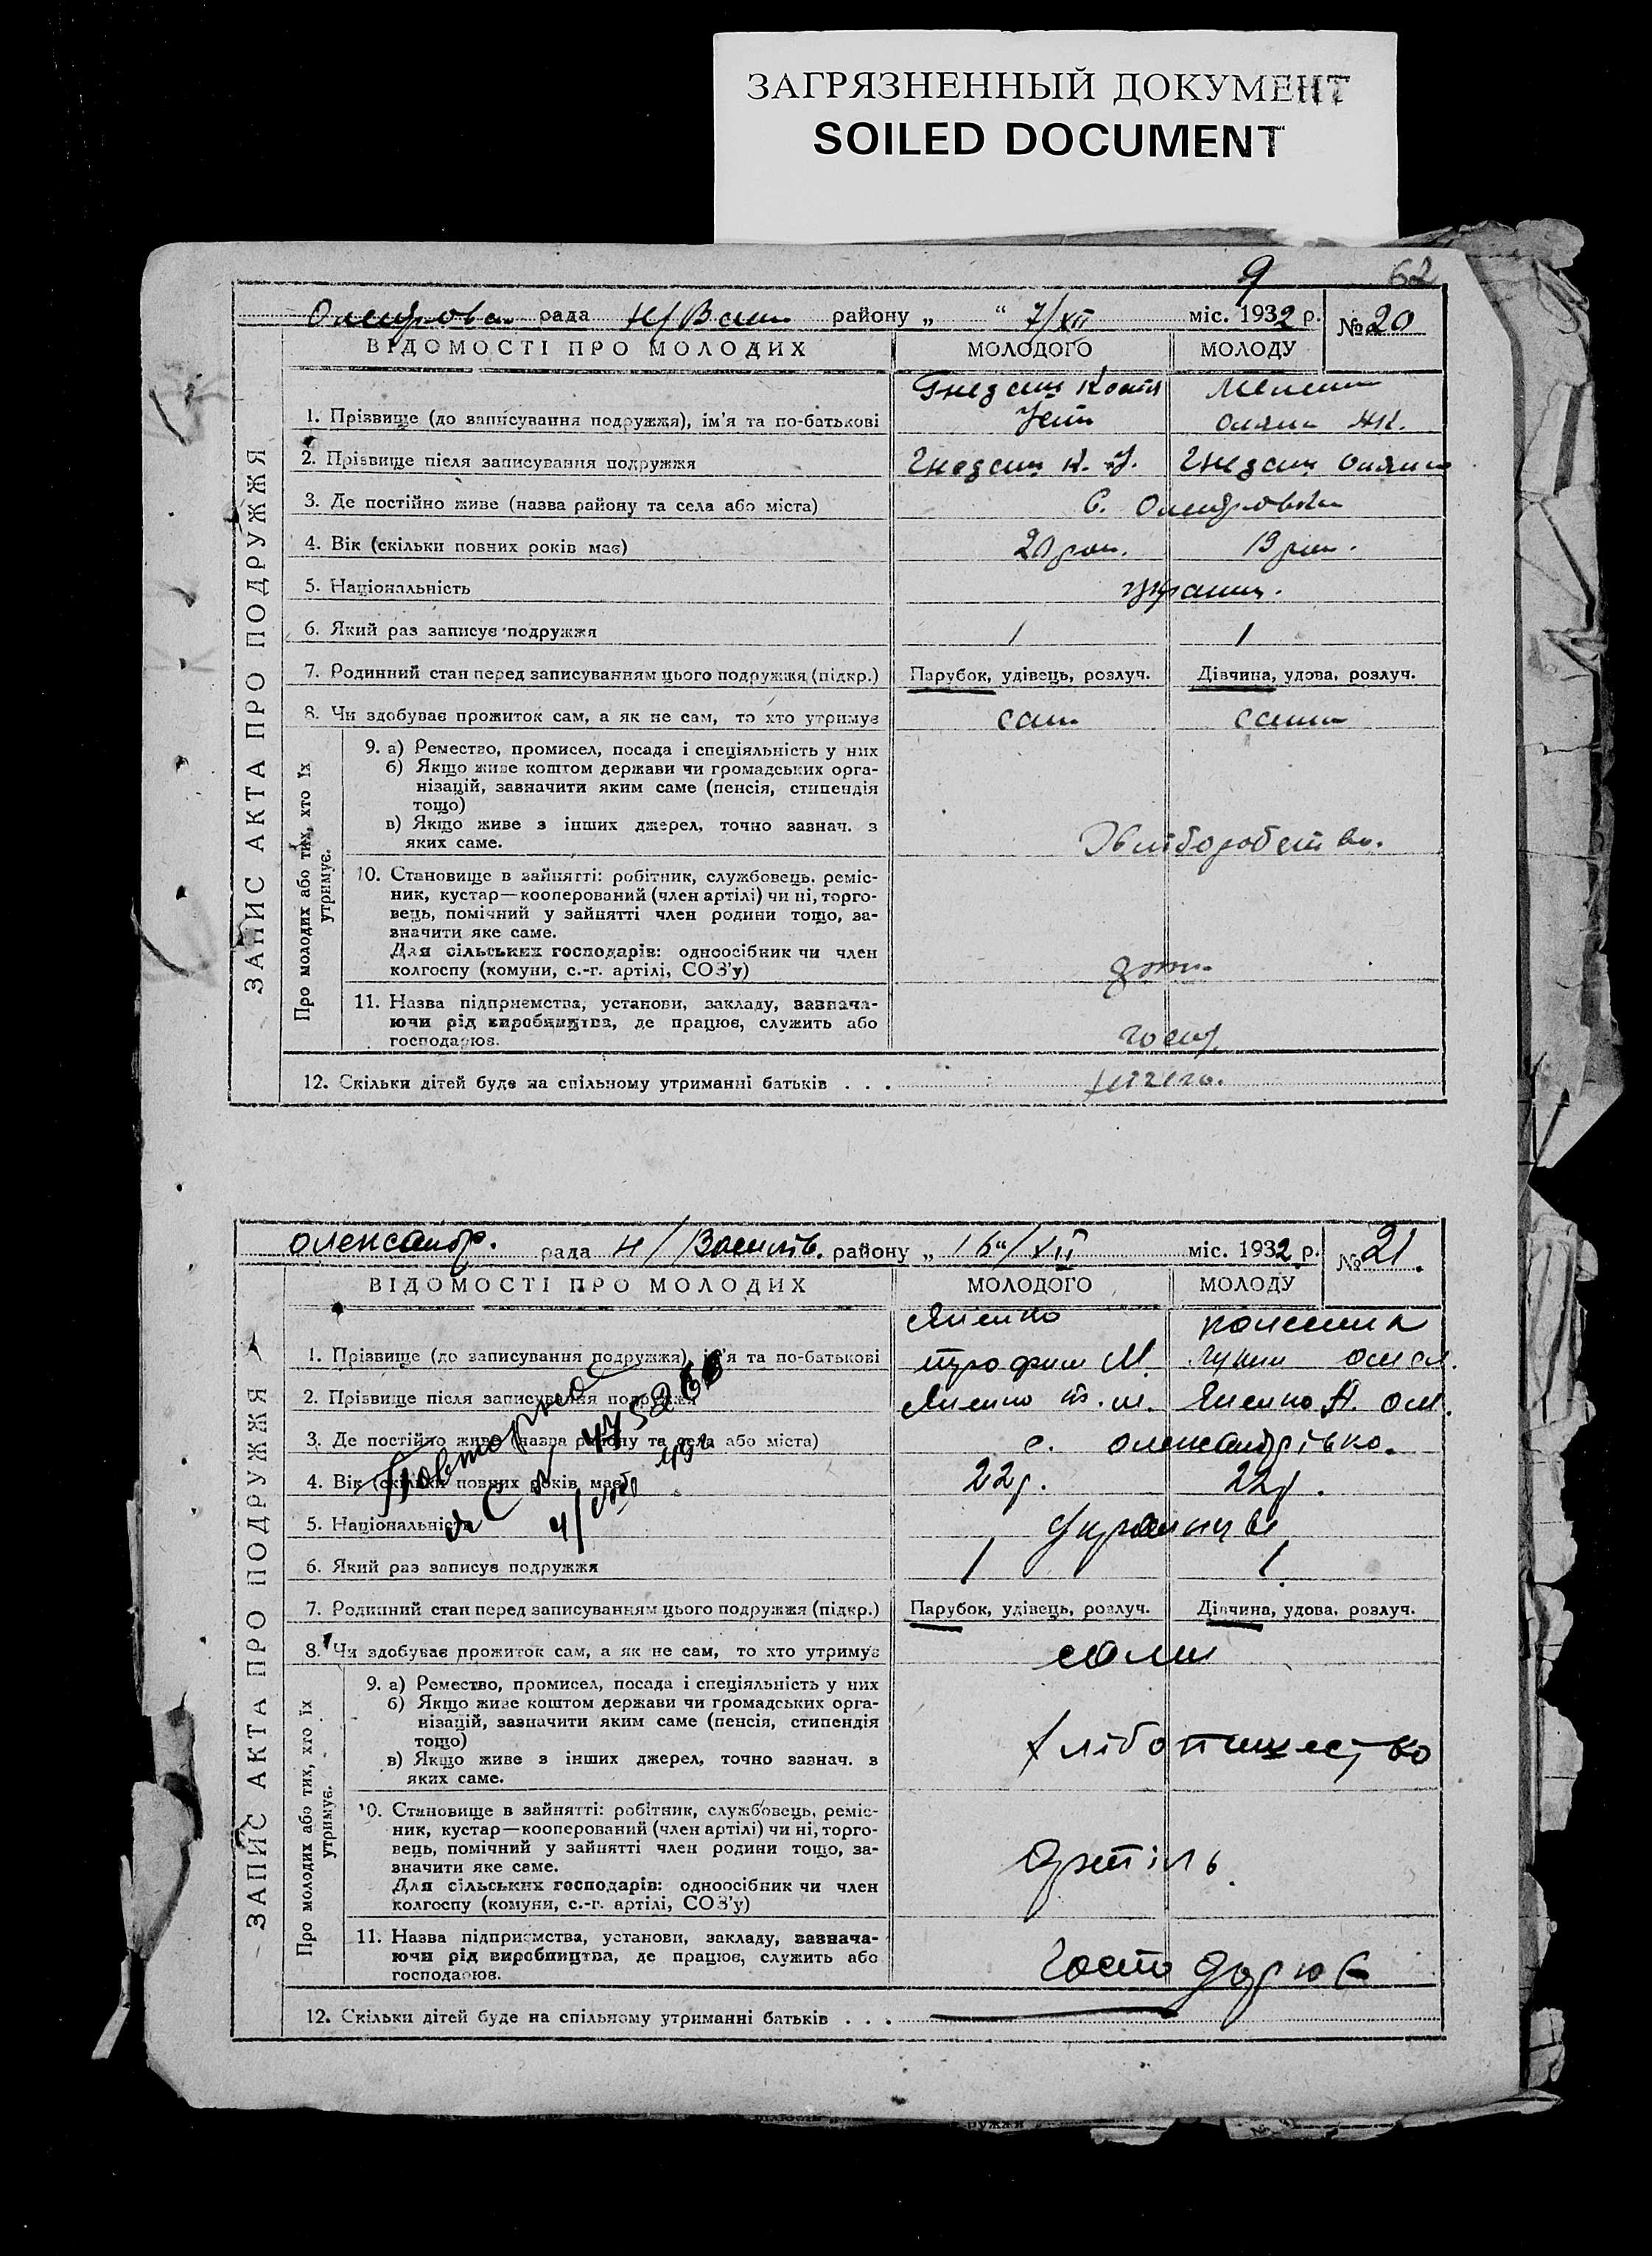 ЗАГРЯЗНЕННЫЙ ДОКУМЕНТ
SOILED DOCUMENT
9
62
рада Н/Васил району „ “ 7/XII міс. 1932 р. № 20
ВІДОМОСТІ ПРО МОЛОДИХ МОЛОДОГО МОЛОДУ
ЗАПИС АКТА ПРО ПОДРУЖЖЯ
1. Прізвище (до записування подружжя), ім'я та по-батькові
2. Прізвище після записування подружжя
3. Де постійно живе (назва району та села або міста) С.
4. Вік (скільки повних років має) 19 рок.
5. Національність україн.
6. Який раз записує подружжя 1 1
7. Родинний стан перед записуванням цього подружжя (підкр.) Парубок, удівець, розлуч. Дівчина, удова, розлуч.
8. Чи здобуває прожиток сам, а як не сам, то хто утримує сам сама
Про молодих або тих, хто їх
утримує.
9. а) Ремество, промисел, посада і спеціяльність у них
б) Якщо живе коштом держави чи громадських орга-
нізацій, зазначити яким саме (пенсія, стипендія
тощо)
в) Якщо живе з інших джерел, точно зазнач. з
яких саме. Хліборобство.
10. Становище в зайнятті: робітник, службовець, реміс-
ник, кустар—кооперований (член артілі) чи ні, торго-
вець, помічний у зайнятті член родини тощо, за-
значити яке саме.
Для сільських господарів: одноосібник чи член
колгоспу (комуни, с.-г. артілі, СОЗ'у)
11. Назва підприємства, установи, закладу, зазнача-
ючи рід виробництва, де працює, служить або
господарює. госп.
12. Скільки дітей буде на спільному утриманні батьків . . .
Олександр. рада Н/Василів. району „ 16“/XII міс. 1932 р. № 21.
ВІДОМОСТІ ПРО МОЛОДИХ МОЛОДОГО МОЛОДУ
ЗАПИС АКТА ПРО ПОДРУЖЖЯ
1. Прізвище (до записування подружжя), ім'я та по-батькові Трофим М.
2. Прізвище після записування подружжя
3. Де постійно живе (назва району та села або міста) с. Олександрівка.
4. Вік (скільки повних років має) 22 р. 22 р.
5. Національність Українці
6. Який раз записує подружжя 1 1.
Повторное
7. Родинний стан перед записуванням цього подружжя (підкр.) Парубок, удівець, розлуч. Дівчина, удова, розлуч.
8. Чи здобуває прожиток сам, а як не сам, то хто утримує сами
Про молодих або тих, хто їх
утримує.
9. а) Ремество, промисел, посада і спеціяльність у них
б) Якщо живе коштом держави чи громадських орга-
нізацій, зазначити яким саме (пенсія, стипендія
тощо)
в) Якщо живе з інших джерел, точно зазнач. з
яких саме.
10. Становище в зайнятті: робітник, службовець, реміс-
ник, кустар—кооперований (член артілі) чи ні, торго-
вець, помічний у зайнятті член родини тощо, за-
значити яке саме. Артіль.
Для сільських господарів: одноосібник чи член
колгоспу (комуни, с.-г. артілі, СОЗ'у)
11. Назва підприємства, установи, закладу, зазнача-
ючи рід виробництва, де працює, служить або
господарює. Господарює
12. Скільки дітей буде на спільному утриманні батьків . . .